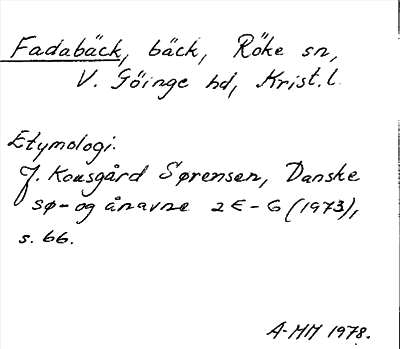 Fadabäck, bäck, Röke sn,
V. Göinge hd, Krist. l.
Etymologi:
J. Kousgård Sørensen, Danske
sø- og ånavne 2 E-G (1973),
s. 66.
A-MM 1978.